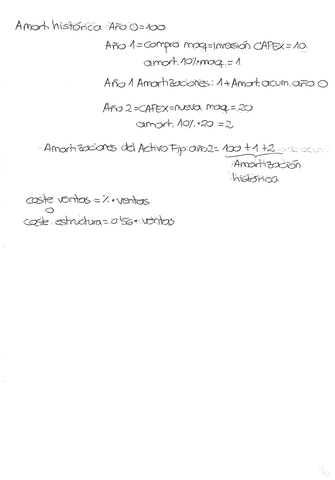 Amort. histórica Año 0=100
Año 1=compro maq=inversión CAPEX=10
amort. 10%maq.=1
Año 1 Amortizaciones: 1+Amort.acum.año 0
Año 2=CAPEX=nueva maq=20
amort. 10%·20=2
Amortizaciones del Activo Fijo año2= 100+1+2
Amortización
histórica
coste ventas=%·ventas
o
coste estructura=0'56·ventas